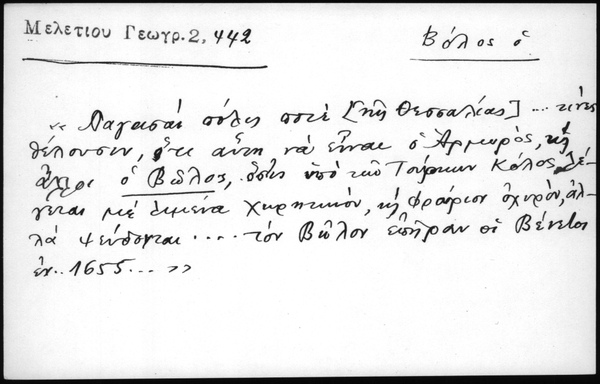 Μελετίου Γεωγρ. 2, 442
Βόλος ὁ
« Παγασαὶ πόλις ποτὲ [τῆς Θεσσαλίας] ... τινὲς
θέλουσιν, ὅτι αὕτη νὰ εἶναι ὁ Ἀρμυρός, κὴ
ἄλλοι ὁ Βῶλος, ὅστις ὑπὸ τῶν Τούρκων Κόλος λέ-
γεται μὲ λιμένα χωρητικόν, κὴ φρούριον ὀχυρόν, ἀλ-
λὰ ψεύδονται .... τὸν Βῶλον ἐπῆραν οἱ Βένετοι
ἐν.. 1655... »